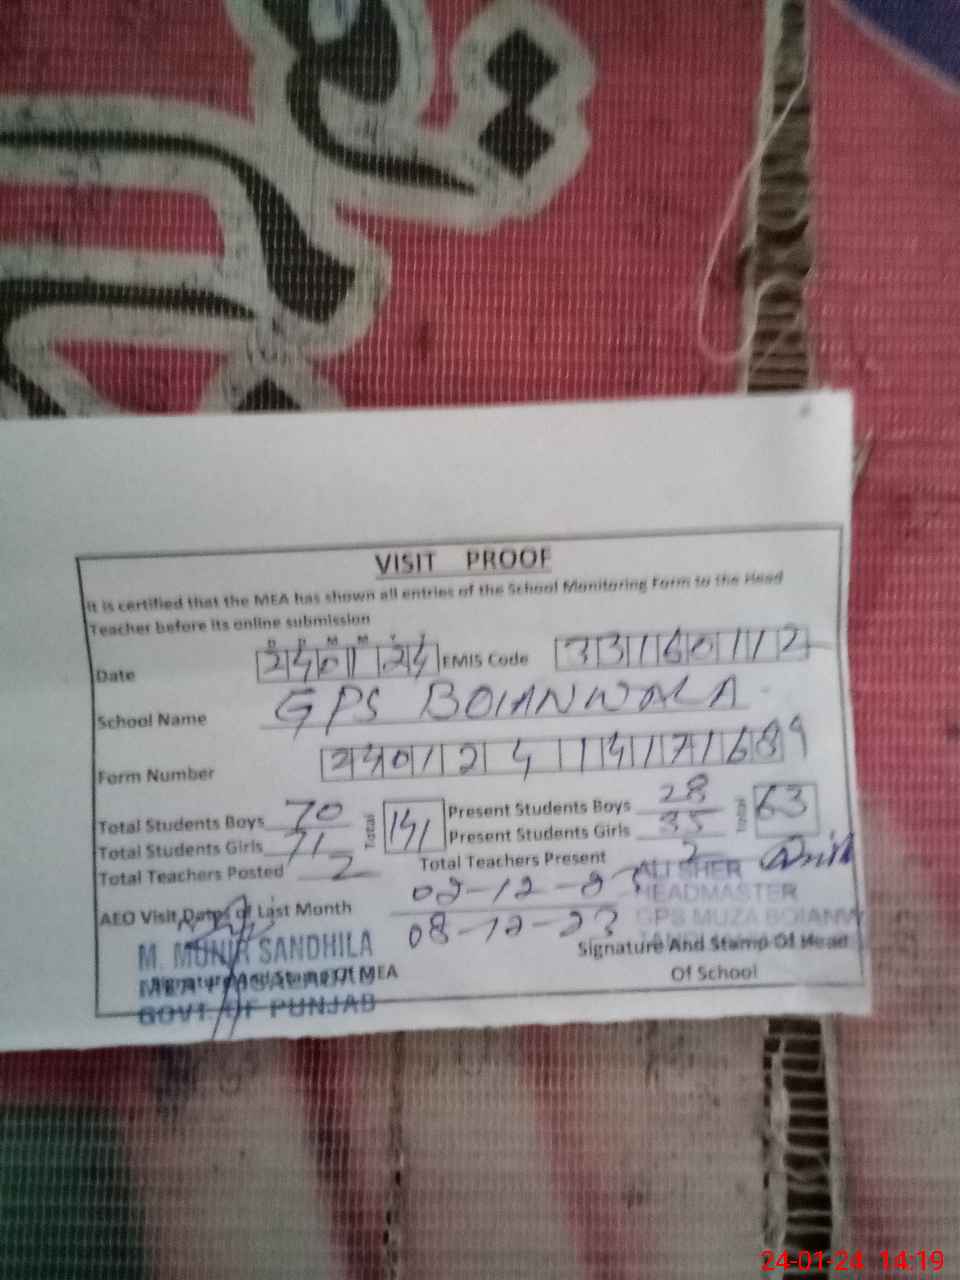 VISIT PROOF
It is certified that the MEA has shown all entries of the School Monitoring Form to the Head
Teacher before its online submission
D D M M Y Y
Date 240124 EMIS Code 33160112
School Name GPS BOIANWALA
Form Number 24012414171689
Total Students Boys 70 Total 141 Present Students Boys 28 Total 63
Total Students Girls 71 Present Students Girls 35
Total Teachers Posted 2 Total Teachers Present 2
AEO Visit Dates of Last Month 02-12-23
08-12-23
ALI SHER
HEADMASTER
GPS MUZA BOIANW
Signature And Stamp Of Head
Of School
M. MUNIR SANDHILA
Signature And Stamp Of MEA
GOVT OF PUNJAB
24-01-24 14:19